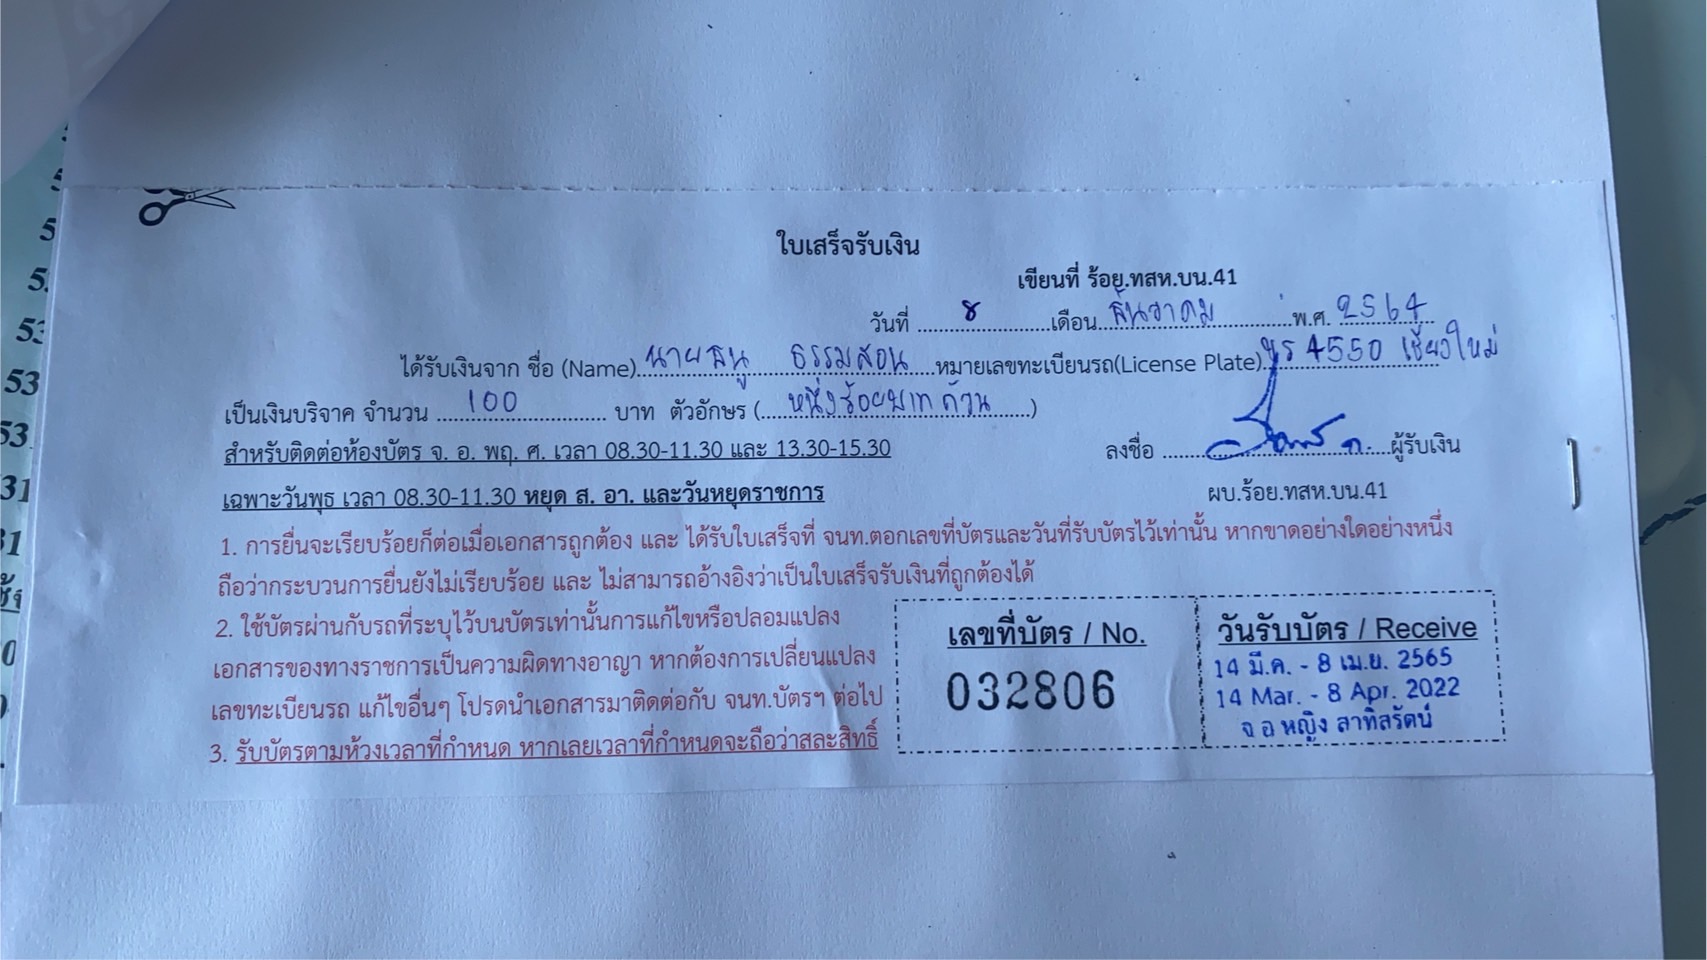 ใบเสร็จรับเงิน
เขียนที่ ร้อย.ทสห.บน.41
วันที่ 8 เดือน ธันวาคม พ.ศ. 2564
ได้รับเงินจาก ชื่อ (Name) นาย ธนู ธรรมสอน หมายเลขทะเบียนรถ(License Plate) 4550 เชียงใหม่
เป็นเงินบริจาค จำนวน 100 บาท ตัวอักษร (หนึ่งร้อยบาทถ้วน)
สำหรับติดต่อห้องบัตร จ. อ. พฤ. ศ. เวลา 08.30-11.30 และ 13.30-15.30
ลงชื่อ ผู้รับเงิน
เฉพาะวันพุธ เวลา 08.30-11.30 หยุด ส. อา. และวันหยุดราชการ
ผบ.ร้อย.ทสห.บน.41
1. การยื่นจะเรียบร้อยก็ต่อเมื่อเอกสารถูกต้อง และ ได้รับใบเสร็จที่ จนท.ตอกเลขที่บัตรและวันที่รับบัตรไว้เท่านั้น หากขาดอย่างใดอย่างหนึ่ง
ถือว่ากระบวนการยื่นยังไม่เรียบร้อย และ ไม่สามารถอ้างอิงว่าเป็นใบเสร็จรับเงินที่ถูกต้องได้
2. ใช้บัตรผ่านกับรถที่ระบุไว้บนบัตรเท่านั้นการแก้ไขหรือปลอมแปลง
เอกสารของทางราชการเป็นความผิดทางอาญา หากต้องการเปลี่ยนแปลง
เลขทะเบียนรถ แก้ไขอื่นๆ โปรดนำเอกสารมาติดต่อกับ จนท.บัตรฯ ต่อไป
3. รับบัตรตามห้วงเวลาที่กำหนด หากเลยเวลาที่กำหนดจะถือว่าสละสิทธิ์
เลขที่บัตร / No.
032806
วันรับบัตร / Receive
14 มี.ค. - 8 เม.ย. 2565
14 Mar. - 8 Apr. 2022
จ อ หญิง สาทิสรัตน์